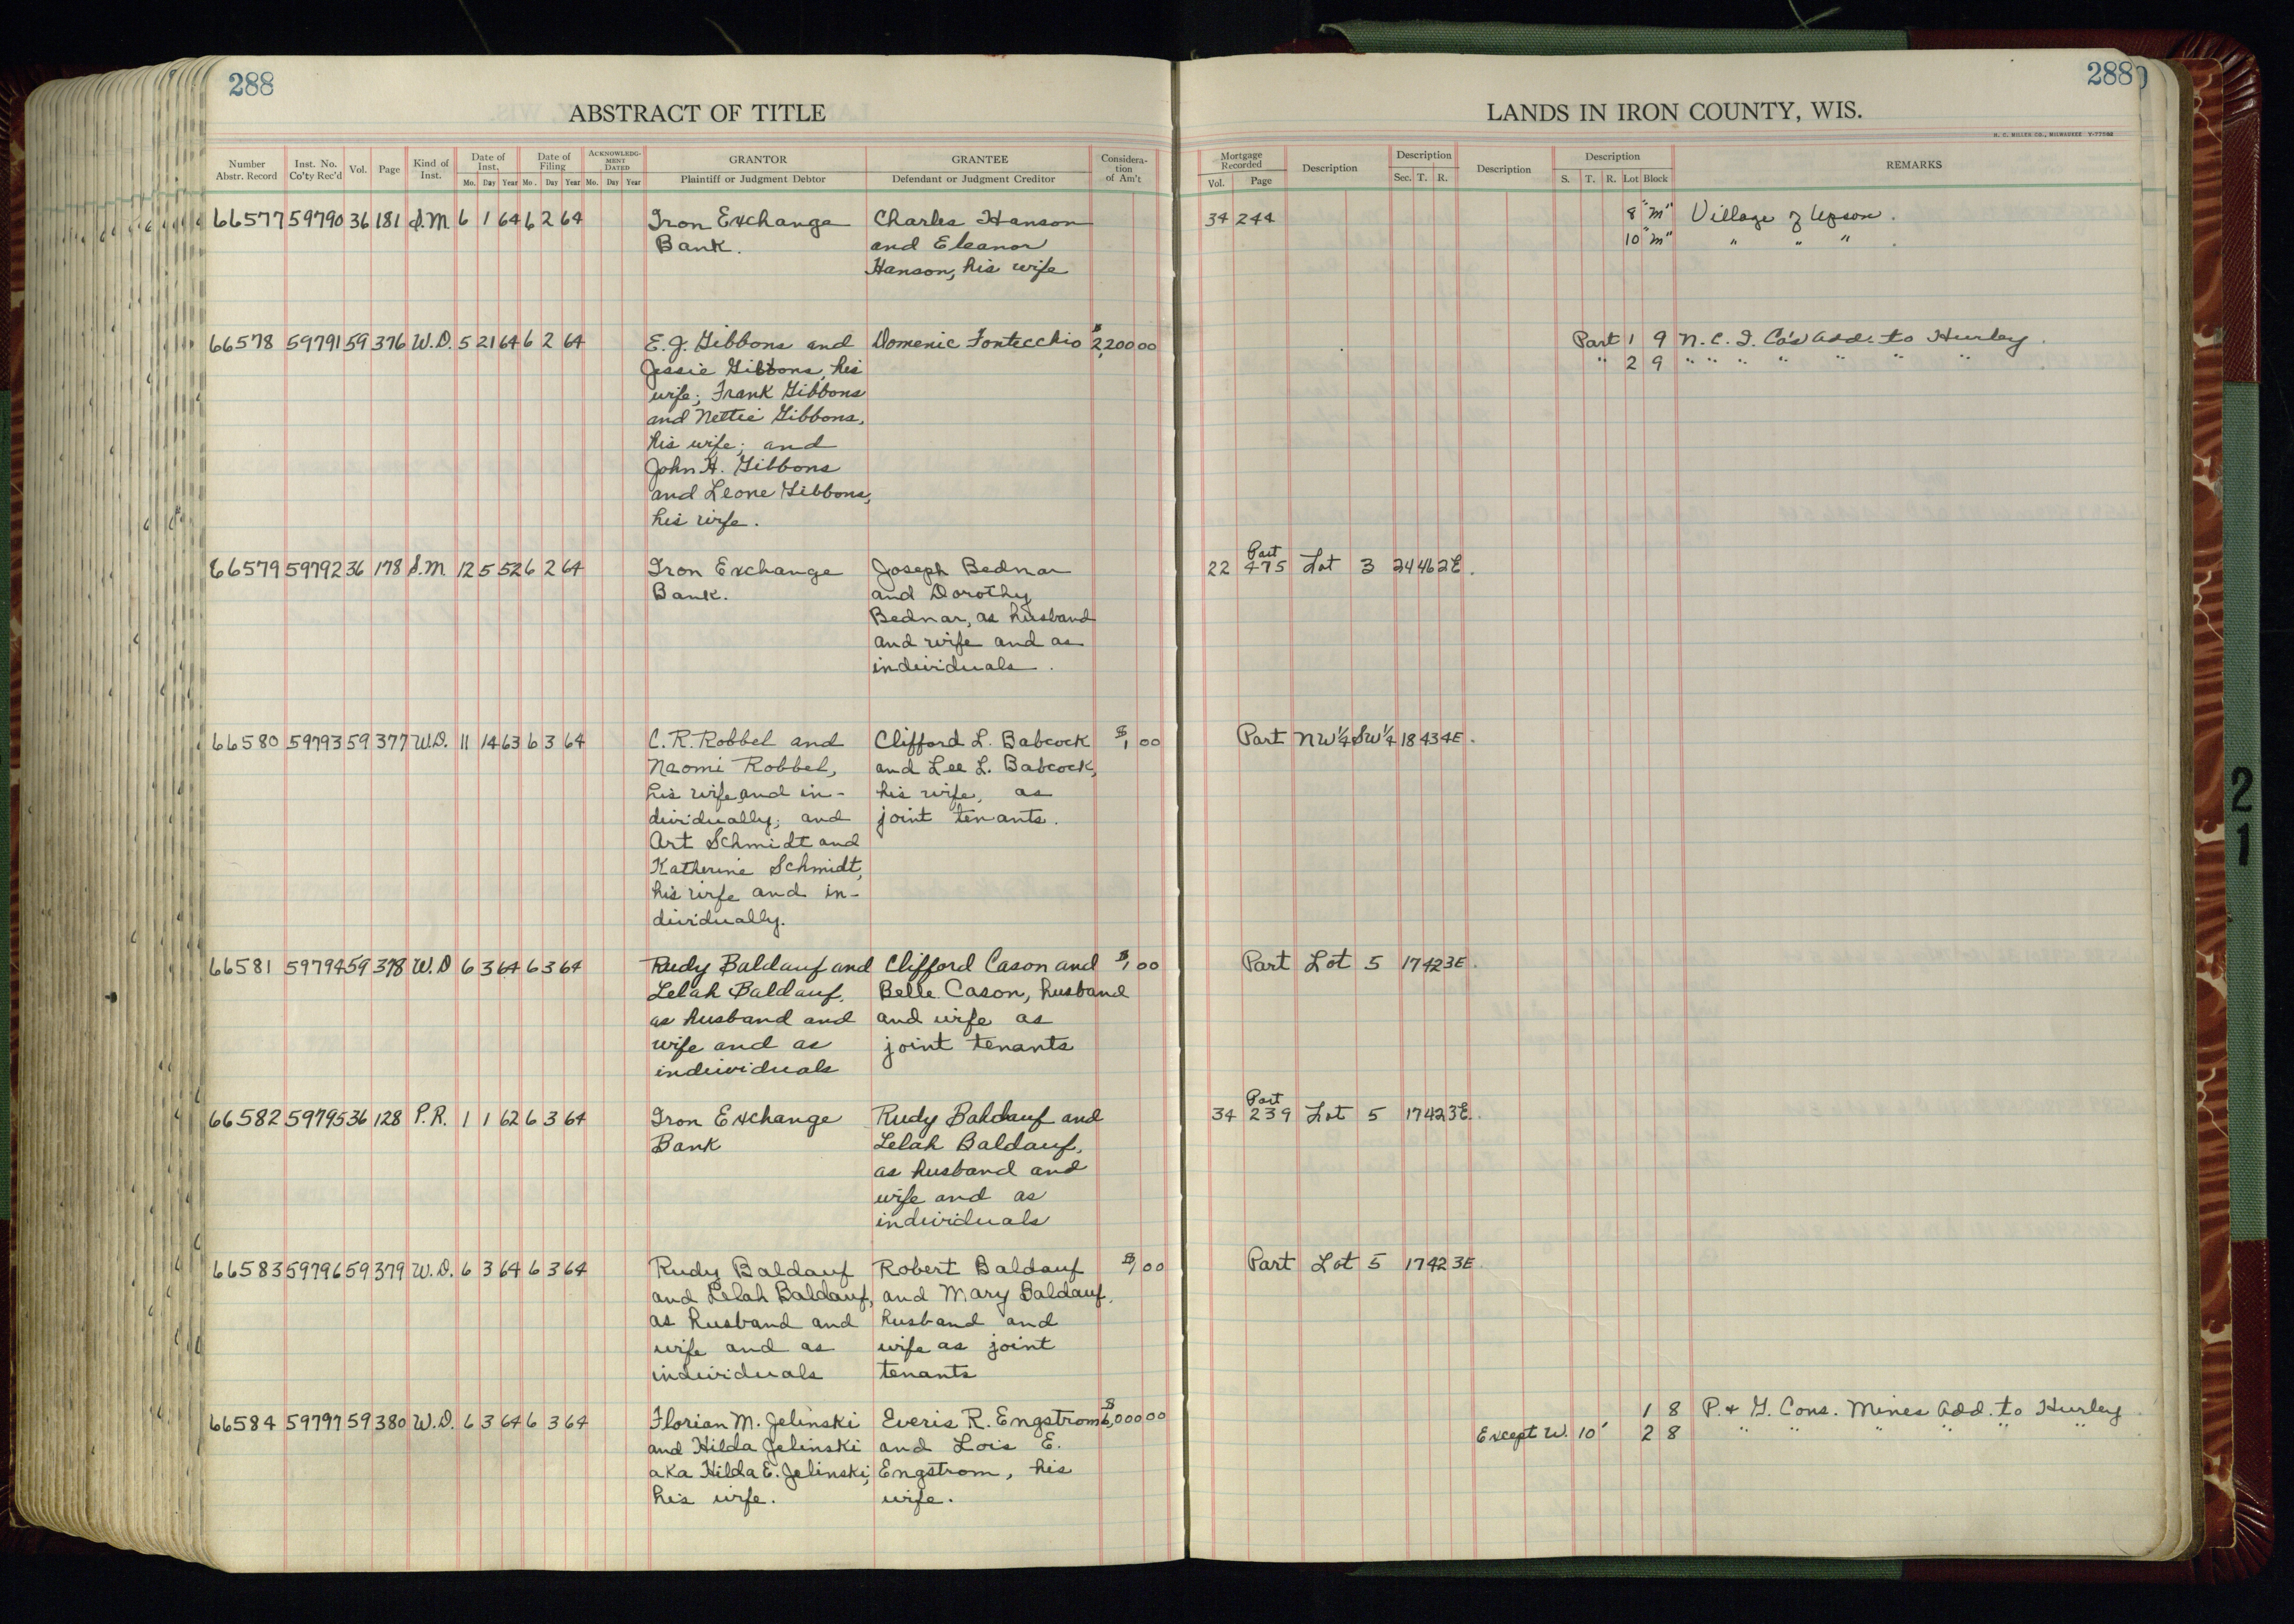 288
ABSTRACT OF TITLE
Number Abstr. Record | Inst. No. Co'ty Rec'd | Vol. | Page | Kind of Inst. | Date of Inst, Mo. Day Year | Date of Filing Mo. Day Year | ACKNOWLEDG-MENT DATED Mo. Day Year | GRANTOR Plaintiff or Judgment Debtor | GRANTEE Defendant or Judgment Creditor | Considera-tion of Am't
66577 59790 36 181 S.M 6 1 64 6 2 64 Iron Exchange Charles Hanson
Bank. and Eleanor
Hanson, his wife
66578 59791 59 376 W.D. 5 21 64 6 2 64 E.J. Gibbons and Domenic Fontecchio $2,200 00
Jessie Gibbons, his
wife; Frank Gibbons
and Nettie Gibbons,
his wife; and
John H. Gibbons
and Leone Gibbons,
his wife.
66579 59792 36 178 S.M 12 5 52 6 2 64 Iron Exchange Joseph Bednar
Bank. and Dorothy
Bednar, as husband
and wife and as
individuals.
66580 59793 59 377 W.D. 11 14 63 6 3 64 C.R. Robbel and Clifford L. Babcock $1 00
Naomi Robbel, and Lee L. Babcock,
his wife and in- his wife, as
dividually; and joint tenants.
Art Schmidt and
Katherine Schmidt,
his wife and in-
dividually.
66581 59794 59 378 W.D 6 3 64 6 3 64 Rudy Baldauf and Clifford Cason and $1 00
Lelah Baldauf, Belle Cason, husband
as husband and and wife as
wife and as joint tenants
individuals
66582 59795 36 128 P.R. 1 1 62 6 3 64 Iron Exchange Rudy Baldauf and
Bank Lelah Baldauf,
as husband and
wife and as
individuals
66583 59796 59 379 W.D. 6 3 64 6 3 64 Rudy Baldauf Robert Baldauf $1 00
and Lelah Baldauf, and Mary Baldauf,
as husband and husband and
wife and as wife as joint
individuals tenants
66584 59797 59 380 W.D. 6 3 64 6 3 64 Florian M. Jelinski Everis R. Engstrom $6,000 00
and Hilda Jelinski and Lois E.
aka Hilda E. Jelinski, Engstrom, his
his wife. wife.
288
LANDS IN IRON COUNTY, WIS.
H. C. MILLER CO., MILWAUKEE Y-77582
Mortgage Recorded Vol. Page | Description | Description Sec. T. R. | Description | Description S. T. R. Lot Block | REMARKS
34 244 8 "M" Village of Upson.
10 "M" " " " .
Part 1 9 N.C.I. Co's Add. to Hurley.
" 2 9 " " " " " " "
Part
22 475 Lot 3 24 46 2E.
Part NW¼ SW¼ 18 43 4E.
Part Lot 5 17 42 3E.
Part
34 239 Lot 5 17 42 3E.
Part Lot 5 17 42 3E.
1 8 P. & G. Cons. Mines Add. to Hurley
Except W. 10' 2 8 " " " " " "
21